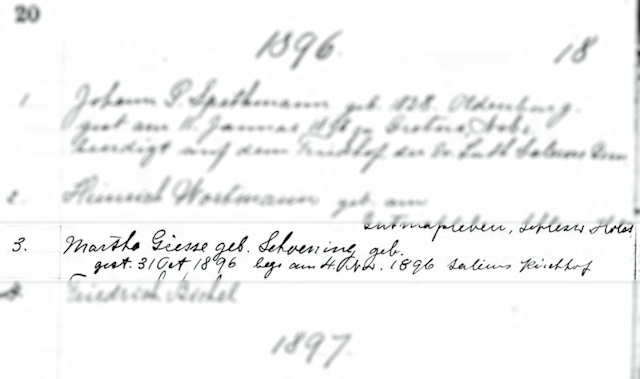 20
1896.
18
1. Johann P. Spethmann geb. 1828. Oldenburg.
gest am 11. Januar 1896 zu Nebr.
beerdigt auf dem Friedhof der Ev. Luth Salems Gem
2. Heinrich Wortmann geb. am
Schlesw Holst
3. Martha Giesse geb. Schoening, geb.
gest. 31 Oct, 1896 begr am 4. Nov. 1896 Salems Kirchhof
4. Friedrich
1897.